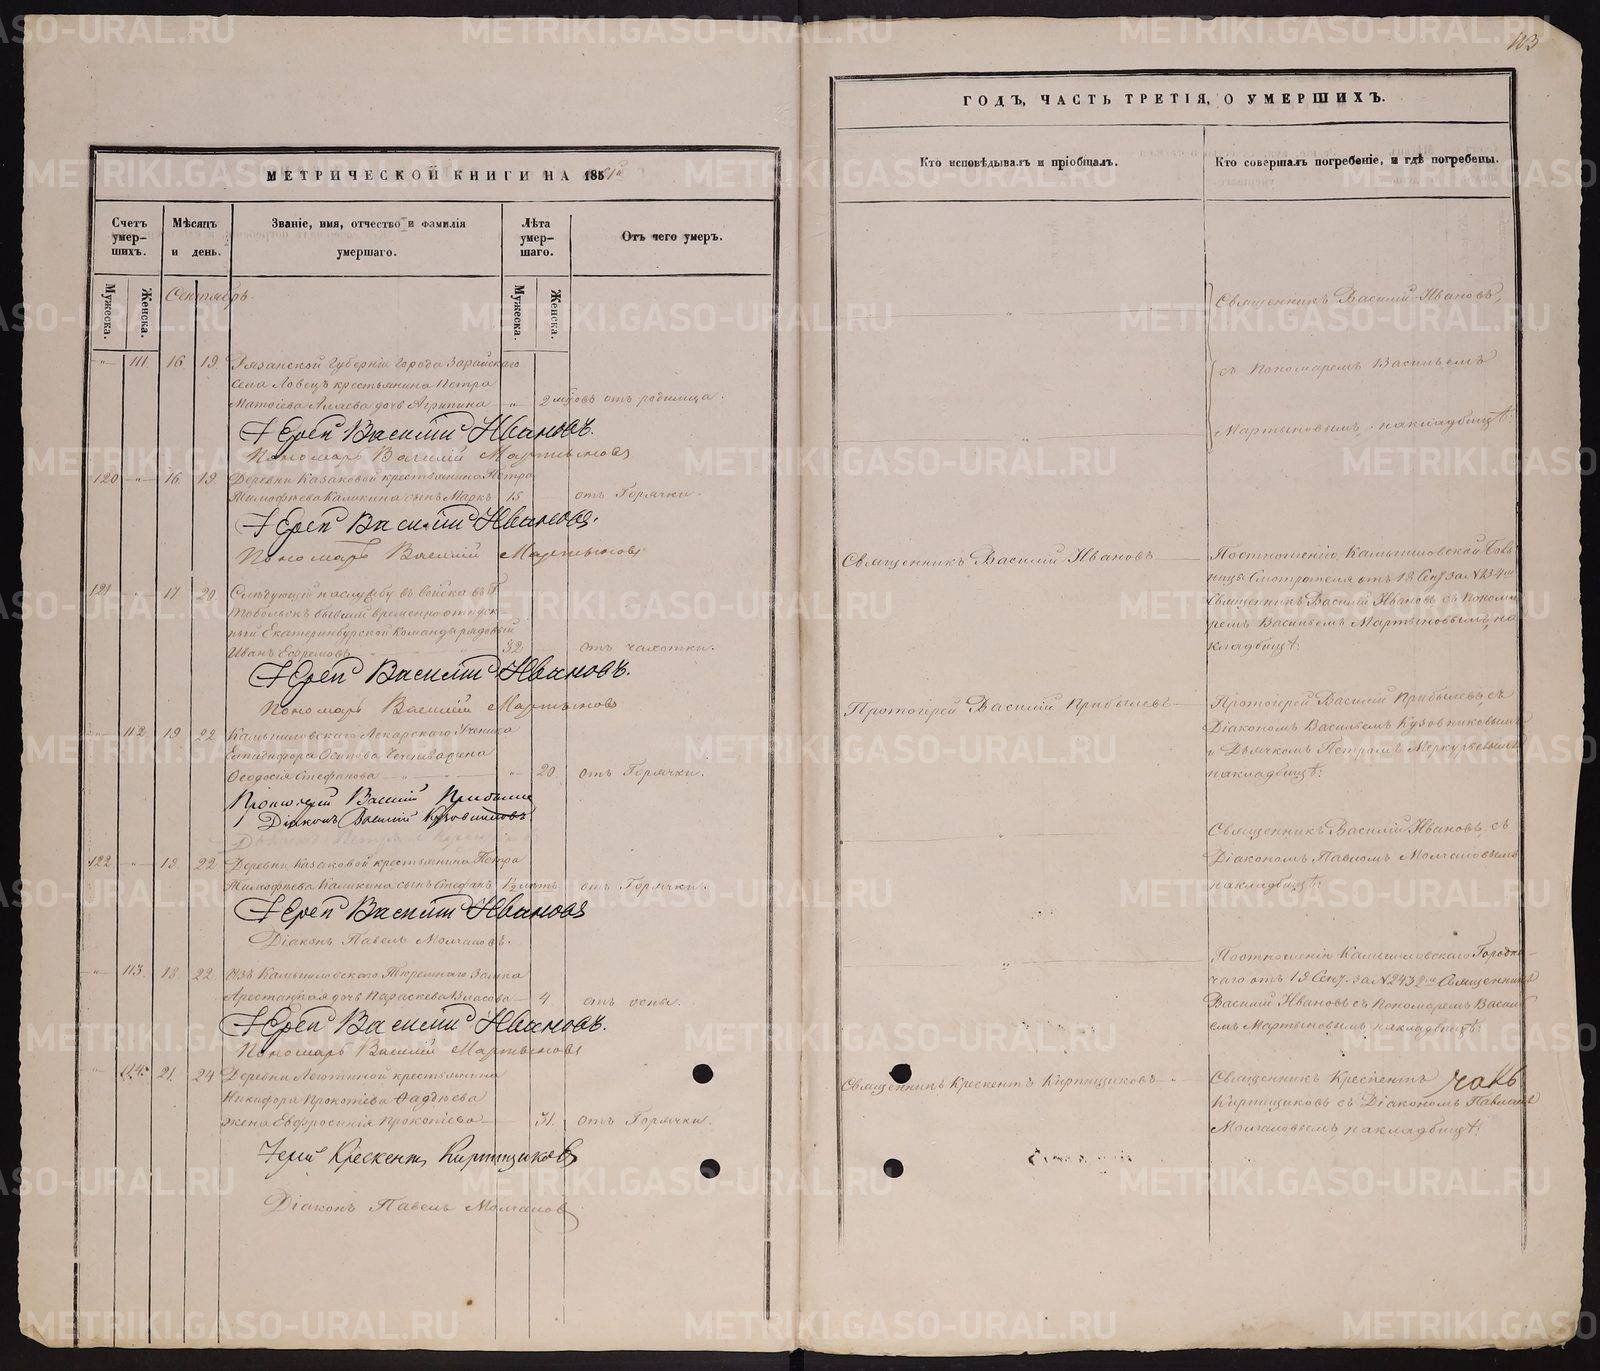 113
МЕТРИЧЕСКОЙ КНИГИ НА 185
ГОДЪ, ЧАСТЬ ТРЕТІЯ, О УМЕРШИХЪ.
Счетъ умер-шихъ.
Мѣсяцъ и день.
Званіе, имя, отчество и фамилія
умершаго.
Лѣта умер-шаго.
Отъ чего умеръ.
Кто исповѣдывалъ и пріобщалъ.
Кто совершалъ погребеніе, и гдѣ погребены.
Мужеска.
Женска.
Мужеска.
Женска.
Сентябрь.
111. 16. 19. Рязанской Губерніи города Зарайскаго
села Ловецъ крестьянина Петра
дочь Агрипина 2 отъ родимца.
Іерей Василій Ивановъ.
Пономарь Василій Мартыновъ
120 16. 19. Деревни Казаковой крестьянина Петра
Тимофѣева Каликина сынъ Маркъ 15 отъ Горячки.
Іерей Василій Ивановъ.
Пономарь Василій Мартыновъ
121 17 20 Слѣдующій на службу въ войска въ Г.
Тобольскъ бывшій временно
Екатеринбурской Команды рядовый
Иванъ Ефремовъ 32 отъ чахотки.
Іерей Василій Ивановъ.
Пономарь Василій Мартыновъ
112 19 22 Камышловскаго Лекарскаго Ученика
Осипова
Ѳеодосія Стефанова 20. отъ Горячки.
Протоіерей Василій Прибылевъ
Діаконъ Василій Кузовниковъ
122 19. 22 Деревни Казаковой крестьянина Петра
Тимофѣева Каликина сынъ Стефанъ 1½ лѣтъ отъ Горячки.
Іерей Василій Ивановъ
Діаконъ Павелъ Молчановъ.
113 18. 22 Изъ Камышловскаго Тюремнаго Замка
Арестантская дочь Параскева Власова 4 отъ оспы.
Іерей Василій Ивановъ.
Пономарь Василій Мартыновъ
114. 21. 24 Деревни крестьянина
Никифора Прокопіева Фаддѣева
жена Евфросинія Прокопіева 31. отъ Горячки.
Іерей Крескентъ Кирпищиковъ
Діаконъ Павелъ Молчановъ
Священникъ Василій Ивановъ,
съ Пономаремъ Васильемъ
Мартыновымъ, на кладбищѣ.
Священникъ Василій Ивановъ
По отношенію Камышловской Боль-
ницы Смотрителя отъ 18 Сент. за №
Священникъ Василій Ивановъ съ Понома-
ремъ Васильемъ Мартыновымъ, на
кладбищѣ.
Протоіерей Василій Прибылевъ
Протоіерей Василій Прибылевъ, съ
Діакономъ Васильемъ Кузовниковымъ
и Дьячкомъ Петромъ Меркурьевымъ
на кладбищѣ.
Священникъ Василій Ивановъ, съ
Діакономъ Павломъ Молчановымъ
на кладбищѣ.
По отношенію Камышловскаго Городни-
чаго отъ 19 Сент. за № 2432 Священникъ
Василій Ивановъ съ Пономаремъ Василь-
емъ Мартыновымъ, на кладбищѣ.
Священникъ Крескентъ Кирпищиковъ
Священникъ Крескентъ
Кирпищиковъ съ Діакономъ Павломъ
Молчановымъ, на кладбищѣ.
METRIKI.GASO-URAL.RU